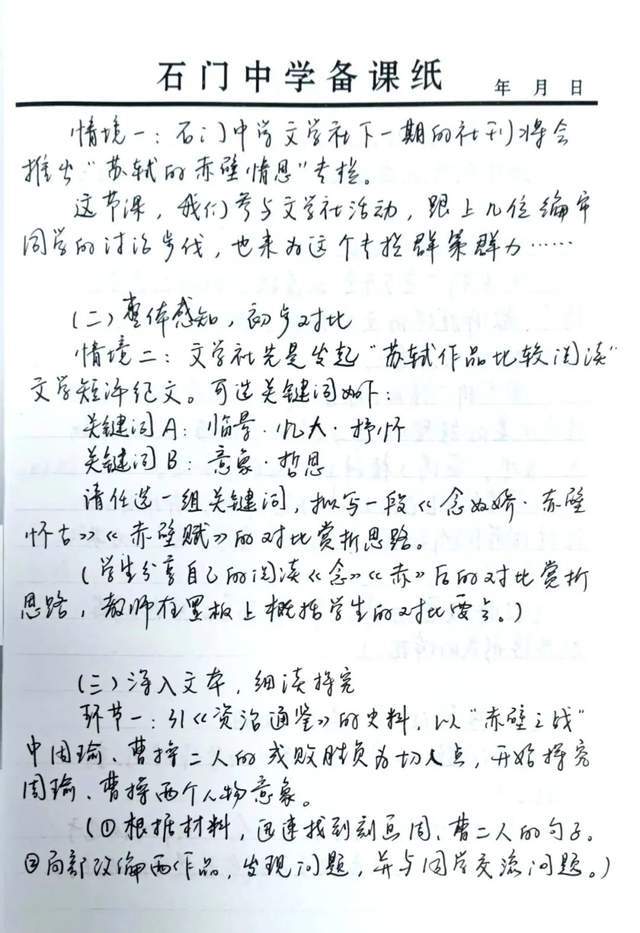 石门中学备课纸
年 月 日
情境一：石门中学文学社下一期的社刊将会
推出“苏轼的赤壁情思”专栏。
这节课，我们参与文学社活动，跟上几位编审
同学的讨论步伐，也来为这个专栏群策群力……
（二）整体感知，初步对比
情境二：文学社先是发起“苏轼作品比较阅读”
文学短评征文。可选关键词如下：
关键词A：临景·忆人·抒怀
关键词B：意象·哲思
请任选一组关键词，拟写一段《念奴娇·赤壁
怀古》《赤壁赋》的对比赏析思路。
（学生分享自己的阅读《念》《赤》后的对比赏析
思路，教师在黑板上概括学生的对比要点。）
（三）深入文本，细读探究
环节一：引《资治通鉴》的史料，以“赤壁之战”
中周瑜、曹操二人的成败胜负为切入点，开始探究
周瑜、曹操两个人物意象。
（①根据材料，迅速找到刻画周、曹二人的句子。
②局部改编两作品，发现问题，并与同学交流问题。）